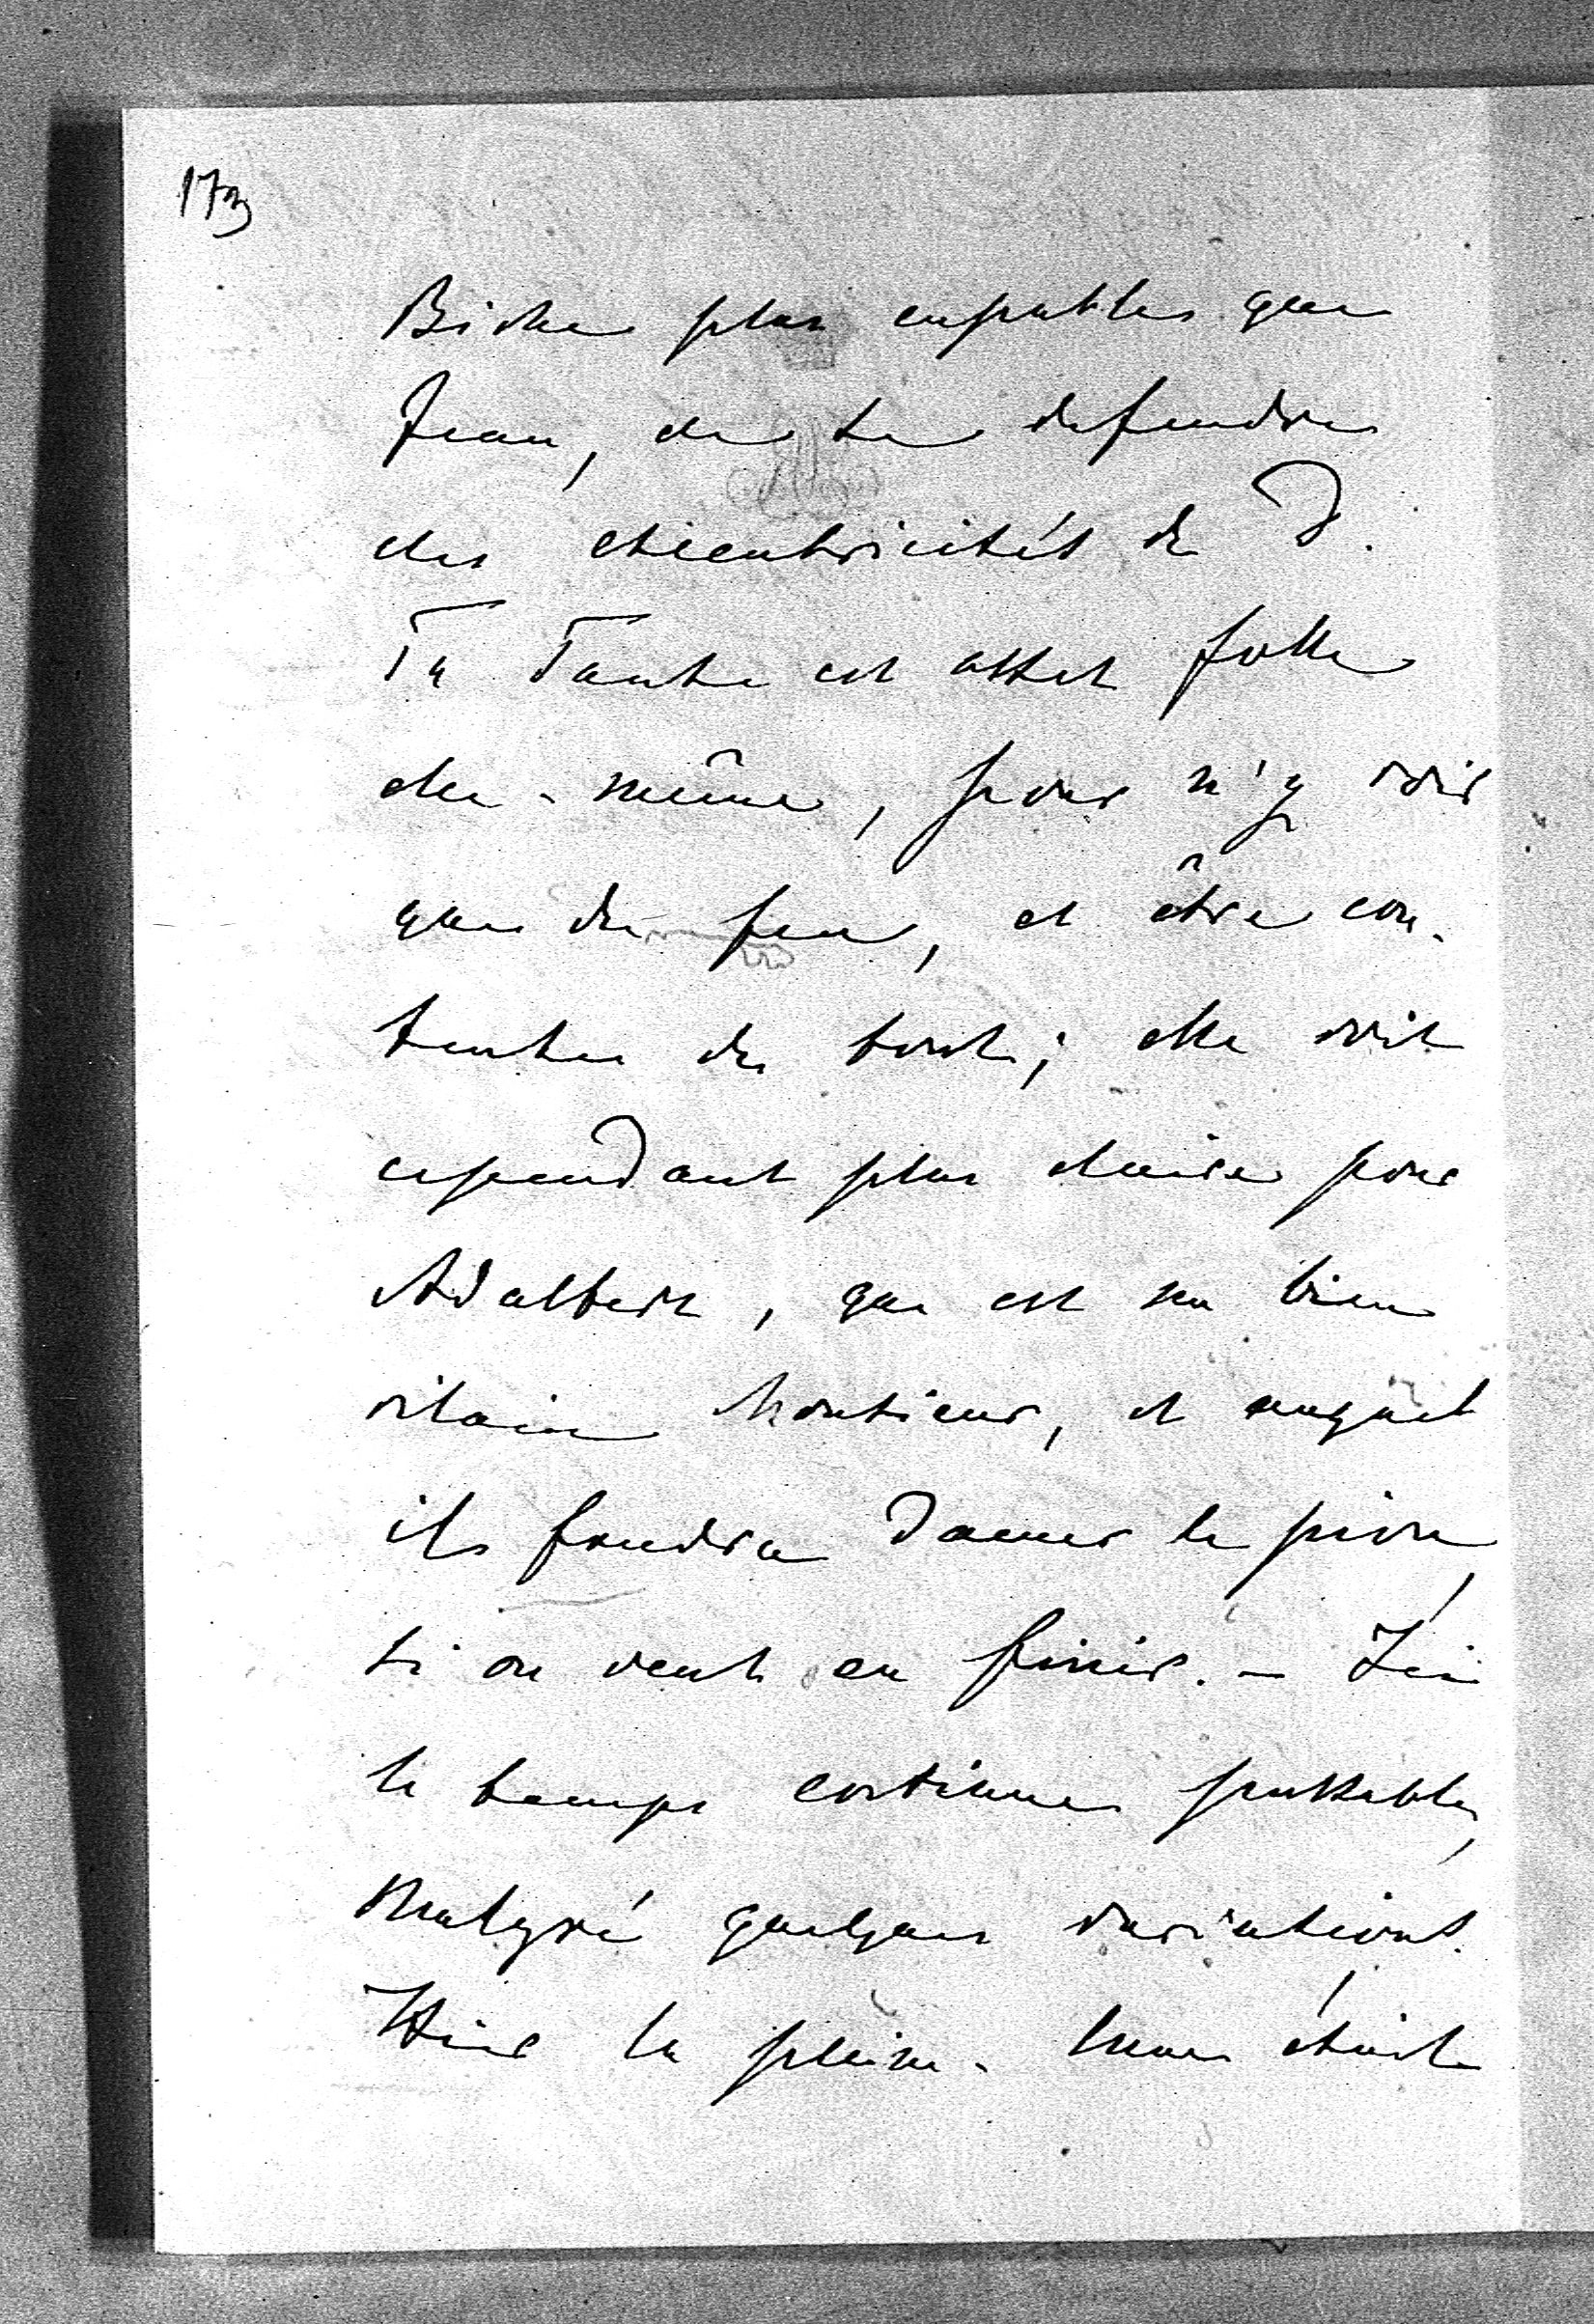 173
Biche plus capables que
Jean, de te defendre
des excentricités de D.
Ta Tante est assez folle
elle-même, pour n'y voir
que du feu, et être con-
tente de tout; elle voit
cependant plus claire pour
Adalbert, qui est un bien
vilain Monsieur, et auquel
il faudra damer le pion,
si on veut en finir. — Ici
le temps continue passable,
Malgré quelques variations.
Hier la pleine-lune était